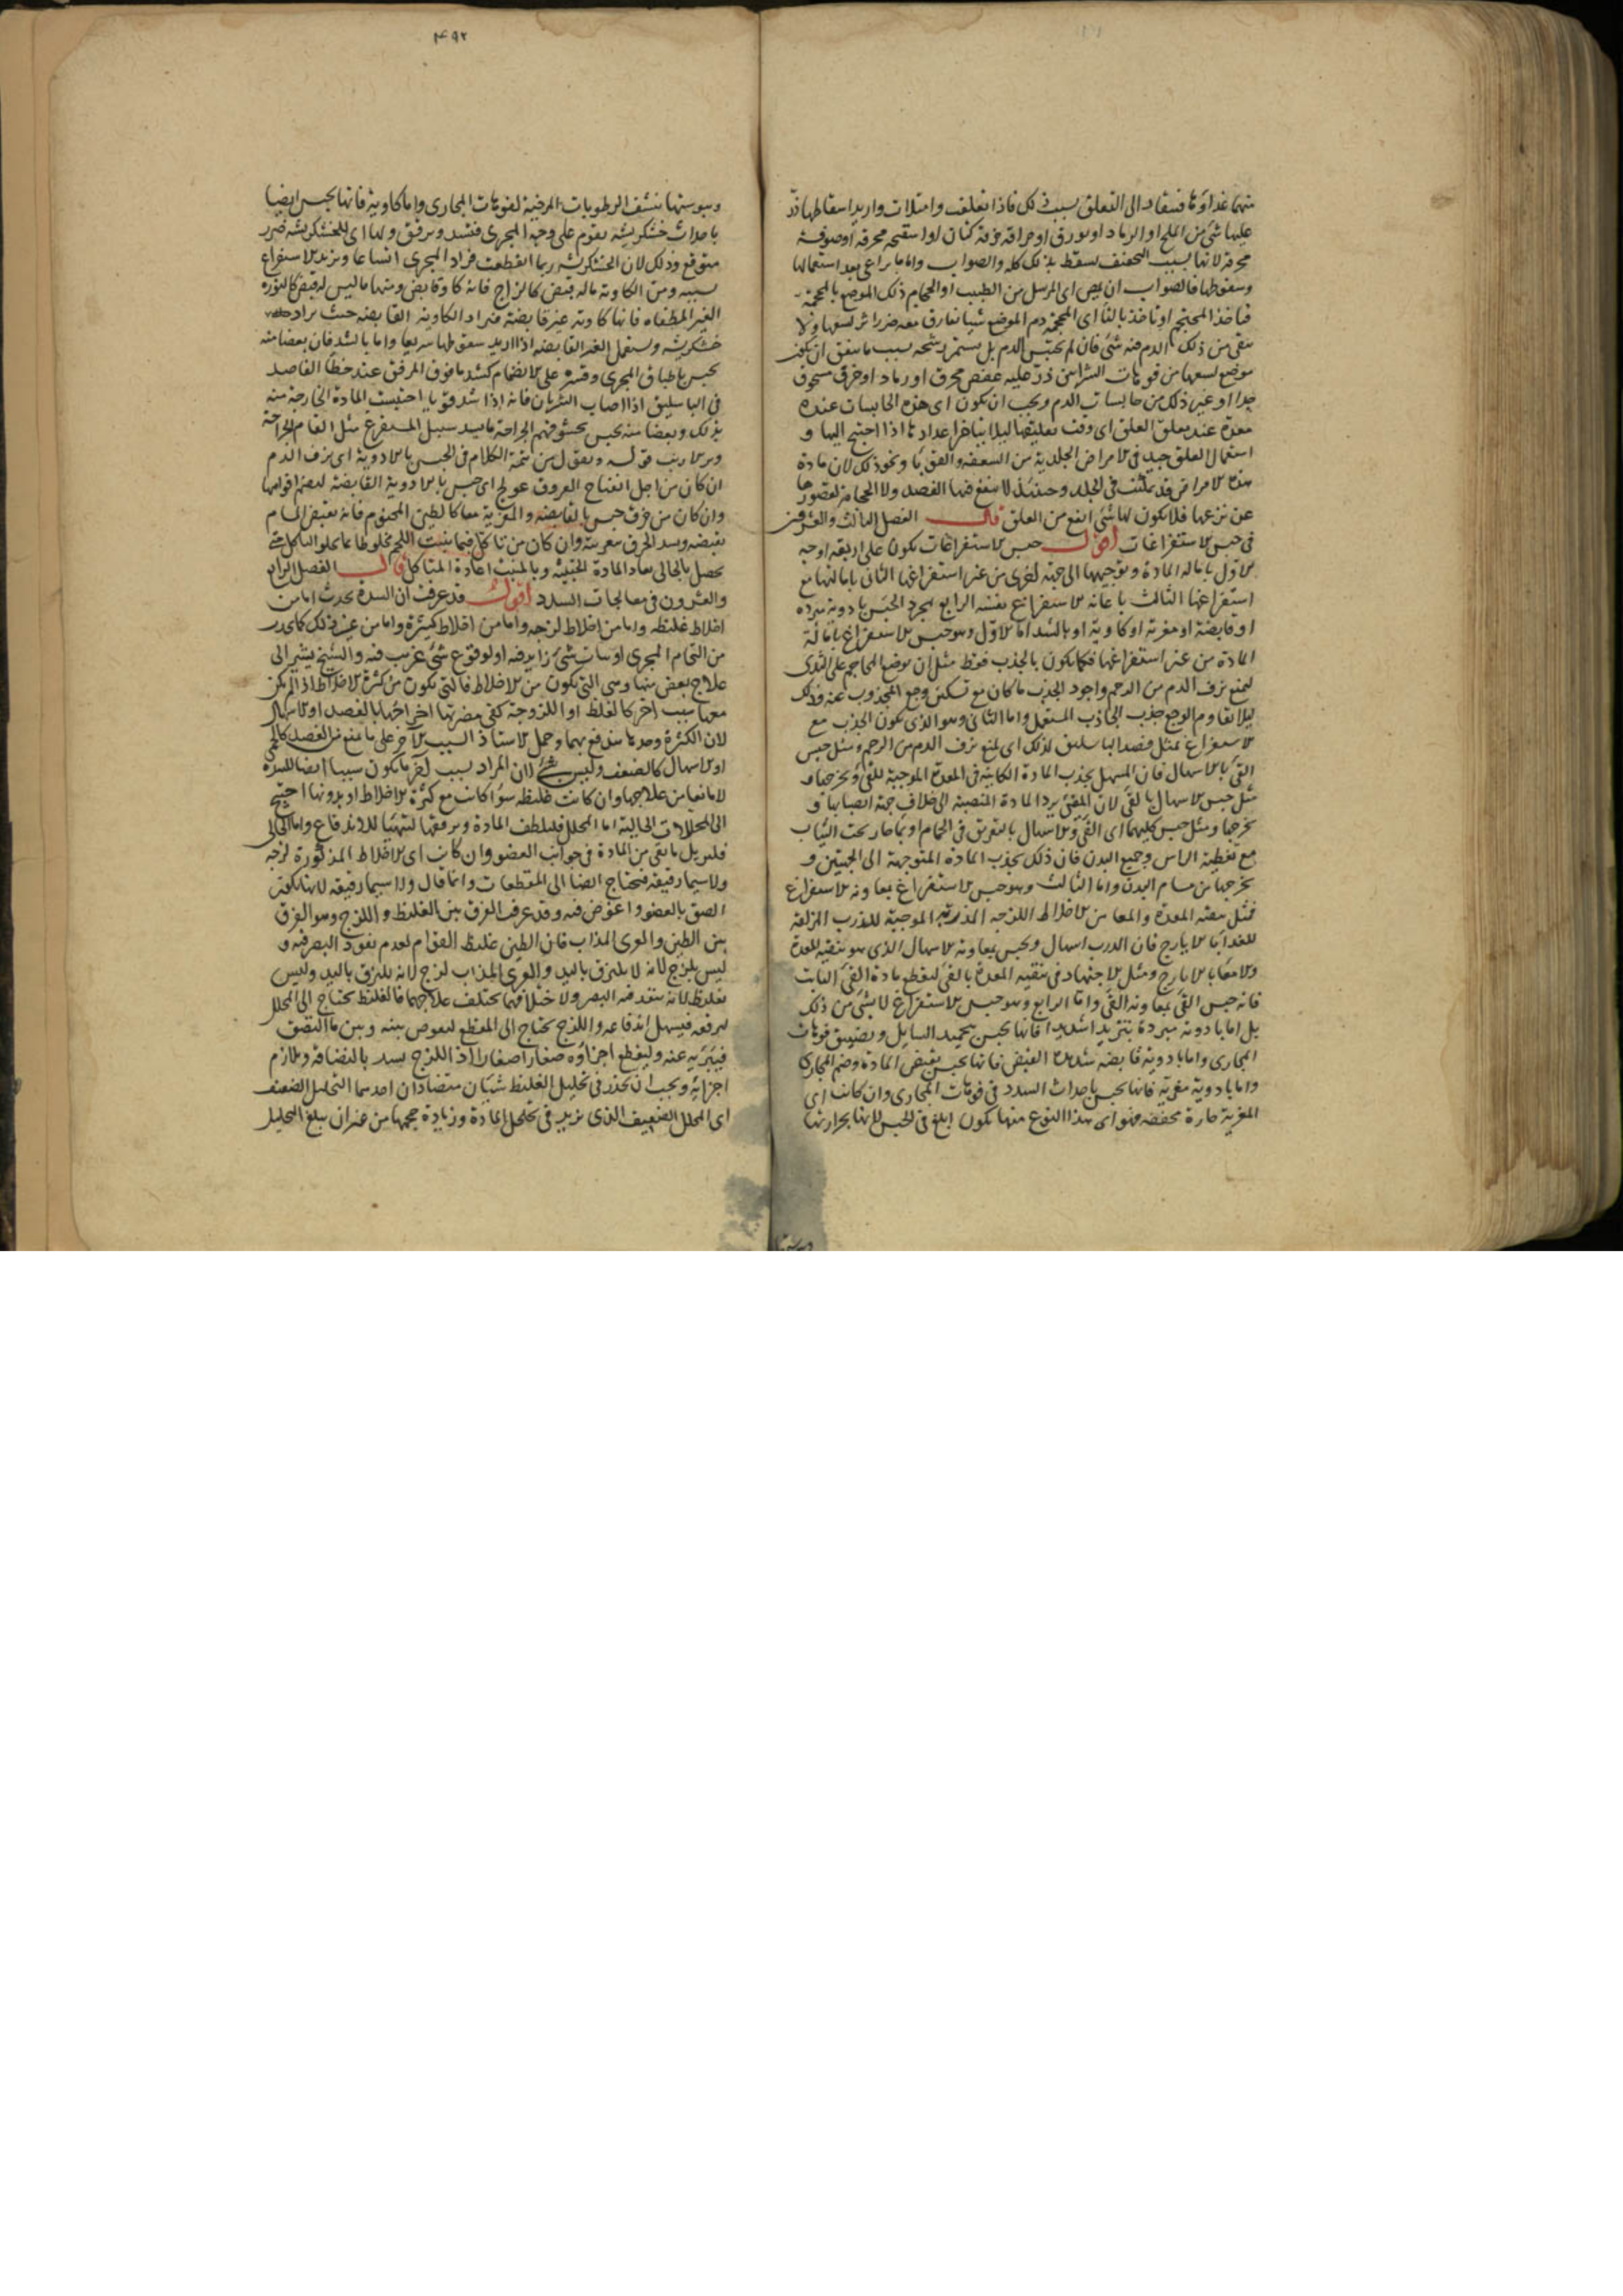 منها غذاؤها فينقاد الى التعلق بسبب ذلك فاذا تعلقت وامتلات واريد اسقاطها ذرّ
عليها شئ من الملح او الرماد او بورق او حراقة خرقة كتان او اسفنجة محرقة او صوفة
محرقة لانها بسبب التجفيف تسقط بذلك كله والصواب واما ما يراعى بعد استعمالها
وسقوطها فالصواب ان يمص اى المرسل من الطبيب او الحجام ذلك الموضع بالمحجمة
فياخذ المحتجم او ياخذ بالفا اى المحجمة دم الموضع شيئا يفارق معه ضرر اثر لسعها ولا
يبقى من ذلك الدم فيه شئ فان لم يحتبس الدم بل يستمر رشحه بسبب ما يتفق ان يكون
موضع لسعها من فوهات الشرايين ذرّ عليه عفص محرق او رماد او خزف مسحوق
جدا او غير ذلك من حابسات الدم ويجب ان يكون اى هذه الحابسات عنده
معدة عند معلق العلق اى وقت تعليقها ليلا يتاخر اعدادها اذا احتيج اليها و
استعمال العلق جيد فى الامراض الجلدية من السعفة والقوبا ونحو ذلك لان مادة
هذه الامراض قد تمكنت فى الجلد وحينئذ لا ينفع فيها الفصد ولا الحجامة لقصورها
عن نزعها فلا يكون لها شئ انفع من العلق قال الفصل الثالث والعشرون
فى حبس الاستفراغات اقول حبس الاستفراغات يكون على اربعة اوجه
الاول بامالة المادة وتوجيهها الى جهة اخرى من غير استفراغها الثانى بامالتها مع
استفراغها الثالث باعانة الاستفراغ نفسه الرابع بمجرد الحبس بادوية مبردة
او قابضة او مغرية او كاوية او بالشد اما الاول وهو حبس الاستفراغ بامالة
المادة من غير استفراغها فكما يكون بالجذب فقط مثل ان يوضع المحاجم على الثدى
ليمنع نزف الدم من الرحم واجود الجذب ما كان مع تسكين وجع المجذوب عنه وذلك
ليلا يقاوم الوجع جذب الجاذب المستعمل واما الثانى وهو الذى يكون الجذب مع
الاستفراغ فمثل فصد الباسليق لذلك اى لمنع نزف الدم من الرحم ومثل حبس
القئ بالاسهال فان المسهل يجذب المادة الكاينة فى المعدة الموجبة للقئ ويخرجها و
مثل حبس الاسهال بالقئ لان المقئ يرد المادة المنصبة الى خلاف جهة انصبابها و
يخرجها ومثل حبس كليهما اى القئ والاسهال بالتعريق فى الحمام او بماء حار تحت الثياب
مع تغطية الراس وجميع البدن فان ذلك يجذب المادة المتوجهة الى الجهتين و
يخرجها من مسام البدن واما الثالث وهو حبس الاستفراغ بمعاونة الاستفراغ
فمثل تنقية المعدة والمعا من الاخلاط اللزجة المذربة الموجبة للذرب المزلقة
للغذا بالايارج فان الذرب اسهال ويحبس بمعاونة الاسهال الذى هو تنقية المعدة
والامعا بالايارج ومثل الاجتهاد فى تنقية المعدة بالقئ لقطع مادة القئ الثابت
فانه حبس القئ بمعاونة القئ واما الرابع وهو حبس الاستفراغ لا بشئ من ذلك
بل اما بادوية مبردة تبريدا شديدا فانها يحبس بتجميد السايل وتضييق فوهات
المجارى واما بادوية قابضة شديدة القبض فانها يحبس بقبض المادة وضم المجارى
واما بادوية مغرية فانها يحبس باحداث السدد فى فوهات المجارى وان كانت اى
المغرية حارة مجففة فهو اى هذا النوع منها يكون ابلغ فى الحبس لانها بحرارتها
ويبوستها
٤٩٢
ويبوستها تنشف الرطوبات المرخية لفوهات المجارى واما كاوية فانها يحبس ايضا
باحداث خشكريشة يقوم على وجه المجرى فتسد ويرفق ولها اى للخشكريشة ضرر
متوقع وذلك لان الخشكريشة ربما انقطعت فزاد المجرى اتساعا ويزيد الاستفراغ
بسببه ومن الكاوية ما له قبض كالزاج فانه كاو قابض ومنها ما ليس له قبض كالنورة
الغير المطفاة فانها كاوية غير قابضة فيراد الكاوية القابضة حيث يراد
خشكريشة ويستعمل الغير القابضة اذا اريد سقوطها سريعا واما بالشد فان بعضا منه
يحبس باطباق المجرى وقسره على الانضمام كشد ما فوق المرفق عند خطا الفاصد
فى الباسليق اذا اصاب الشريان فانه اذا شد فوقها احتبست المادة الخارجة منه
بذلك وبعضا منه يحبس بحشو فم الجراحة ما يسد سبيل المستفرغ مثل القام الجراحة
وبر الارنب قوله ونقول من تتمة الكلام فى الحبس بالادوية اى نزف الدم
ان كان من اجل انفتاح العروق عولج اى حبس بالادوية القابضة ليضم افواهها
وان كان من خرق حبس بالقابضة والمغرية معا كالطين المختوم فانه يقبض المسام
بقبضه ويسد الخرق بغرويته وان كان من تاكل فبما ينبت اللحم مخلوطا بما يجلو التاكل حتى
يحصل بالجالى بعاد المادة الخبيثة وبالمنبت اعادة المتاكل قال الفصل الرابع
والعشرون فى معالجات السدد اقول قد عرفت ان السدة يحدث اما من
اخلاط غليظة واما من اخلاط لزجة واما من اخلاط كثيرة واما من غير ذلك كما يحدث
من التحام المجرى او نبات شئ زايد فيه او لوقوع شئ غريب فيه والشيخ يشير الى
علاج بعض منها وهى التى يكون من الاخلاط فالتى يكون من كثرة الاخلاط اذا لم يكن
معها سبب اخر كالغلظ او اللزوجة كفى مضرتها اخراجها بالفصد او الاسهال
لان الكثرة وحدها يندفع بهما وحمل الاستاذ السبب الاخر على ما يمنع من الفصد كالحمى
او الاسهال كالضعف وليس بشئ لان المراد بسبب اخر ما يكون سببا ايضا للسدة
لا مانعا من علاجها وان كانت غليظة سوا كانت مع كثرة الاخلاط او بدونها احتيج
الى المحللات الجالية اما المحلل فليلطف المادة ويرققها لتتهيأ للاندفاع واما الجالى
فليزيل ما بقى من المادة فى جوانب العضو وان كانت اى الاخلاط المذكورة لزجة
ولا سيما رقيقة فتحتاج ايضا الى المقطعات وانما قال ولا سيما رقيقة لانها يكون
الصق بالعضو واغوص فيه وقد عرف الفرق بين الغليظ واللزج وهو الفرق
بين الطين والغرى المذاب فان الطين غليظ القوام لعدم نفوذ البصر فيه و
ليس بلزج لانه لا يلتزق باليد والغرى المذاب لزج لانه يلتزق باليد وليس
بغليظ لانه ينفذ فيه البصر ولاختلافهما يختلف علاجهما فالغليظ يحتاج الى المحلل
ليرققه فيسهل اندفاعه واللزج يحتاج الى المقطع ليغوص بينه وبين ما التصق
فيبريه عنه وليقطع اجزاؤه صغارا صغارا اذ اللزج يسد بالتصاقه وتلازم
اجزائه ويجب ان يحذر فى تحليل الغليظ شيئان متضادان احدهما التحليل الضعيف
اى المحلل الضعيف الذى يزيد فى تخلخل المادة وزيادة حجمها من غير ان يبلغ التحليل